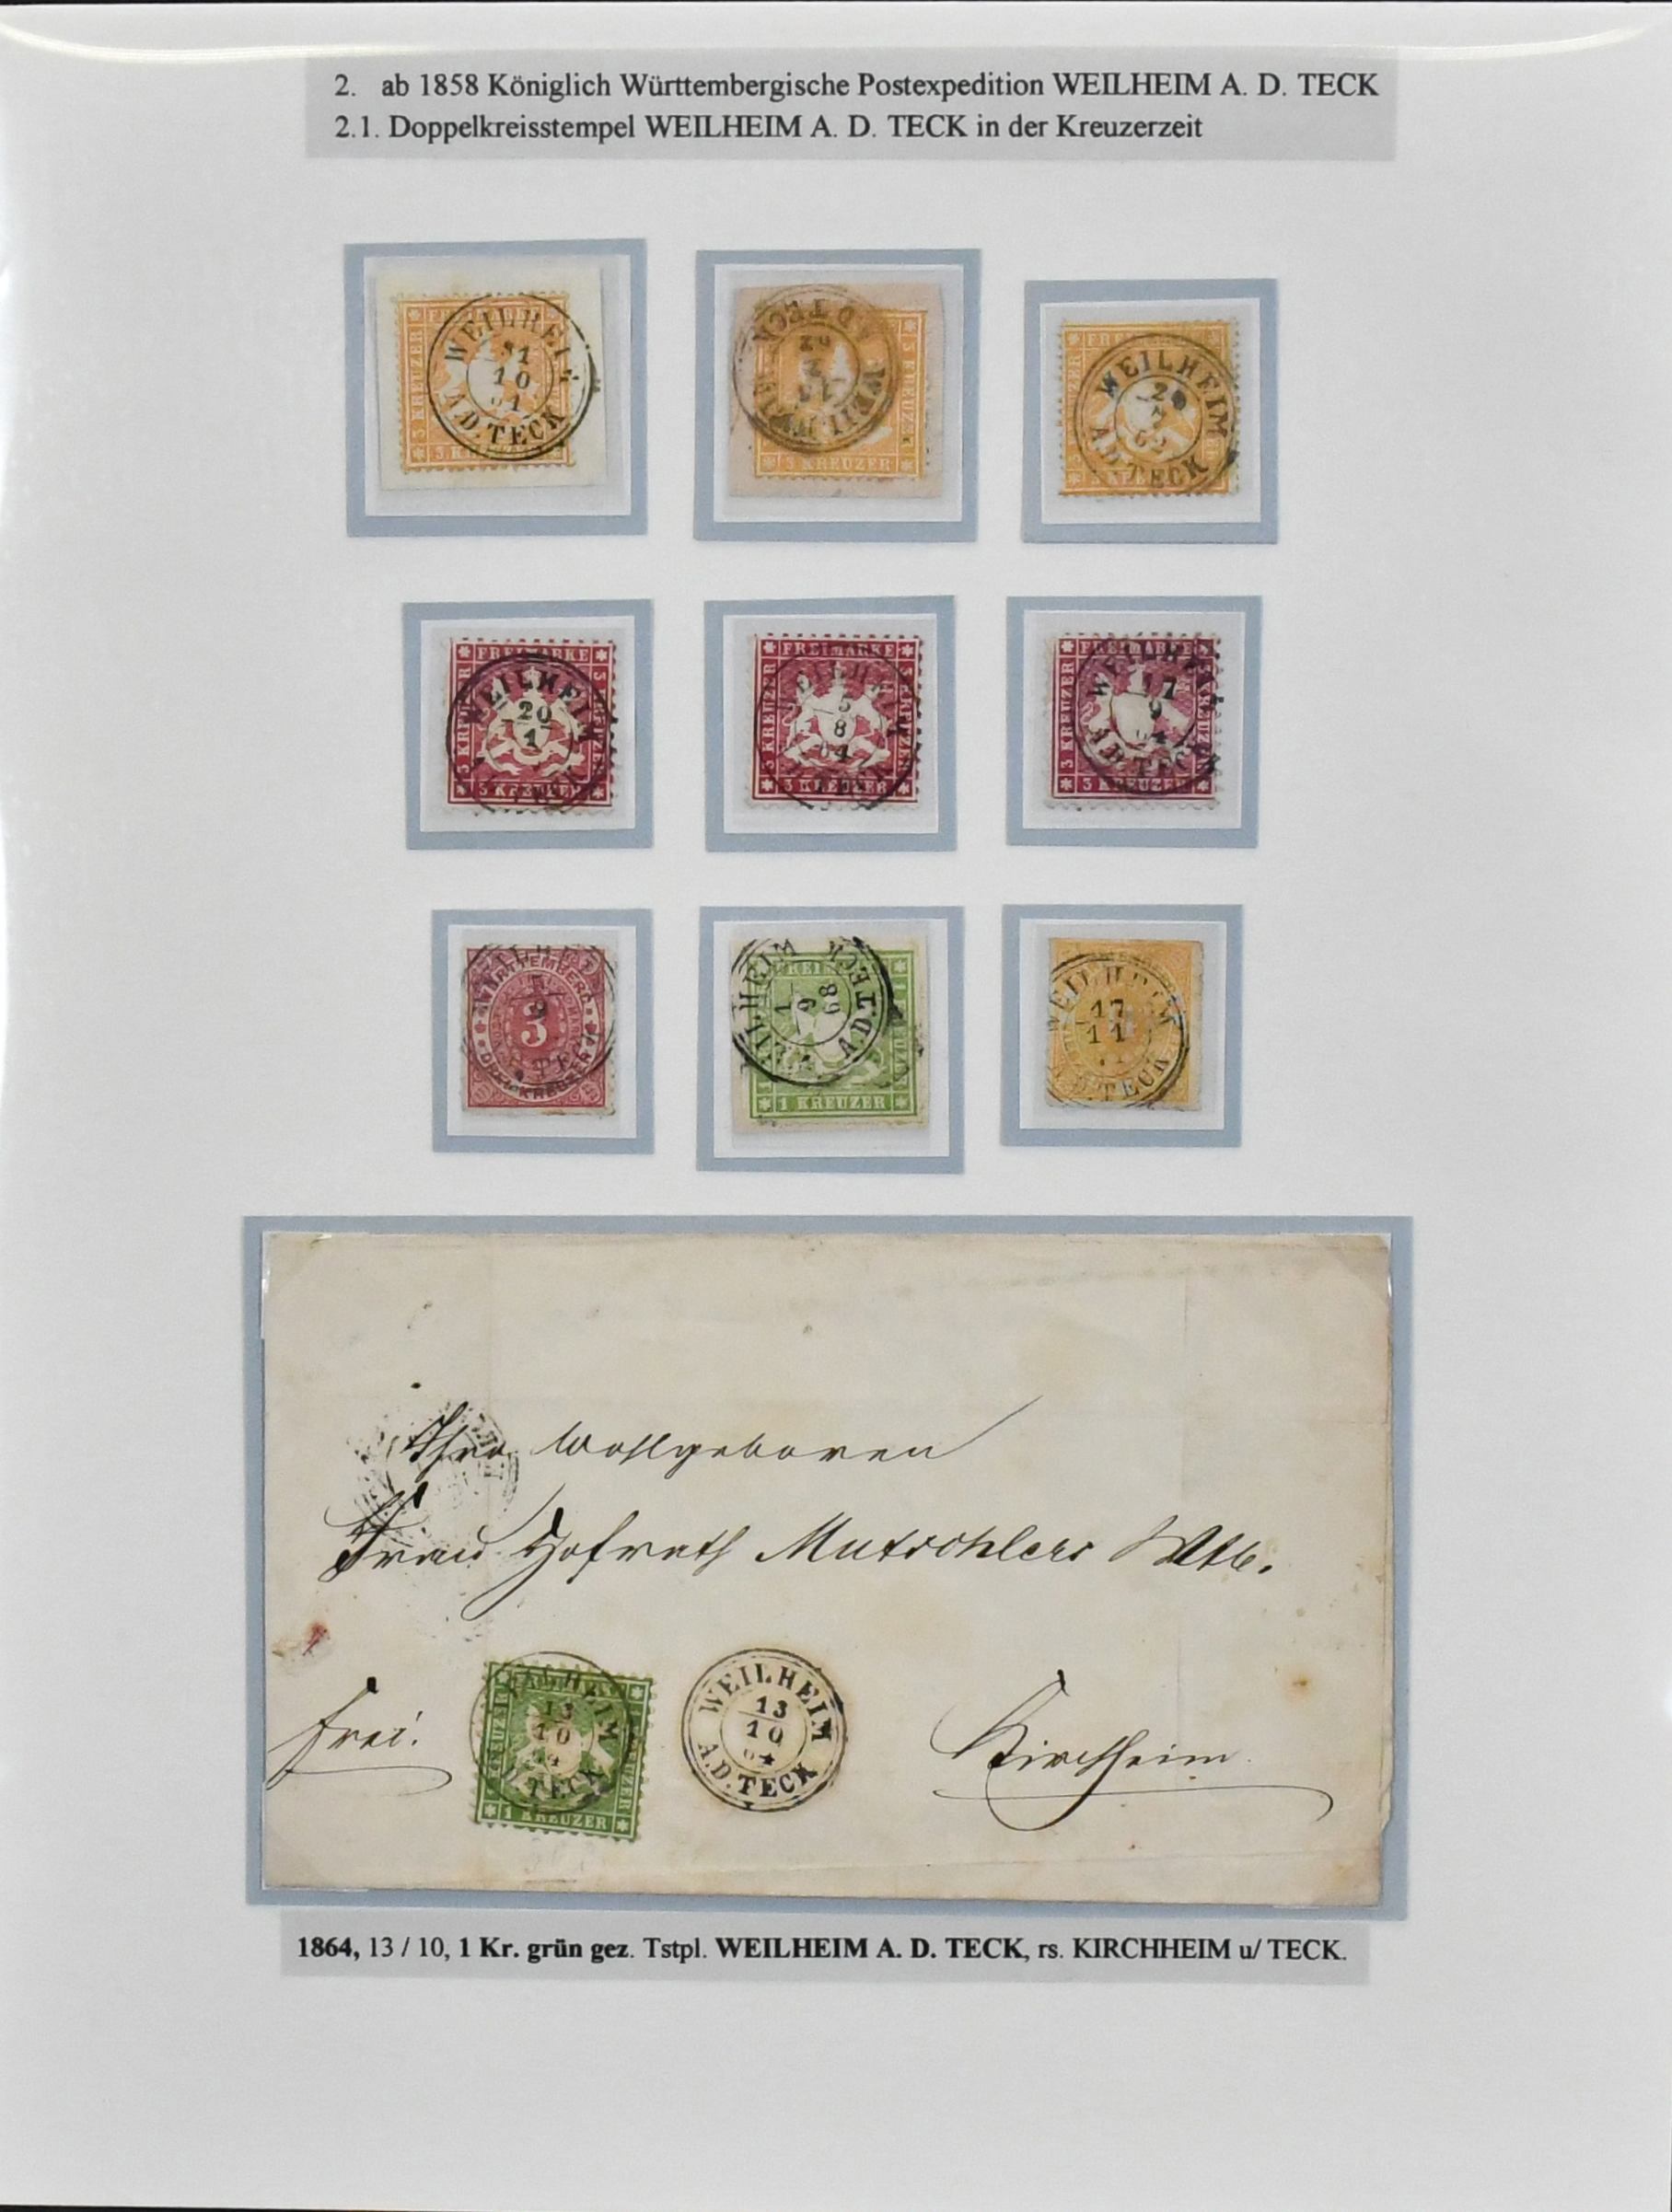 2. ab 1858 Königlich Württembergische Postexpedition WEILHEIM A. D. TECK
2.1. Doppelkreisstempel WEILHEIM A. D. TECK in der Kreuzerzeit
FREIMARKE
3 KREUZER
WEILHEIM
31
10
61
A.D.TECK
3 KREUZER
WEILHEIM
A.D.TECK
3 KREUZER
WEILHEIM
A.D.TECK
FREIMARKE
3 KREUZER
WEILHEIM
20
1
FREIMARKE
3 KREUZER
WEILHEIM
5
8
64
TECK
FREIMARKE
3 KREUZER
WEILHEIM
17
9
64
A.D.TECK
WÜRTTEMBERG
3
DREI KREUZER
WEILHEIM
TECK
1 KREUZER
WEILHEIM
1
9
68
A.D.TECK
WEILHEIM
17
11
TECK
Ihro Wohlgeboren
Frau Hofrath Mutschlers Wtb.
frei.
WEILHEIM
13
10
64
TECK
1 KREUZER
WEILHEIM
13
10
64
A.D.TECK
Kirchheim
1864, 13 / 10, 1 Kr. grün gez. Tstpl. WEILHEIM A. D. TECK, rs. KIRCHHEIM u/ TECK.